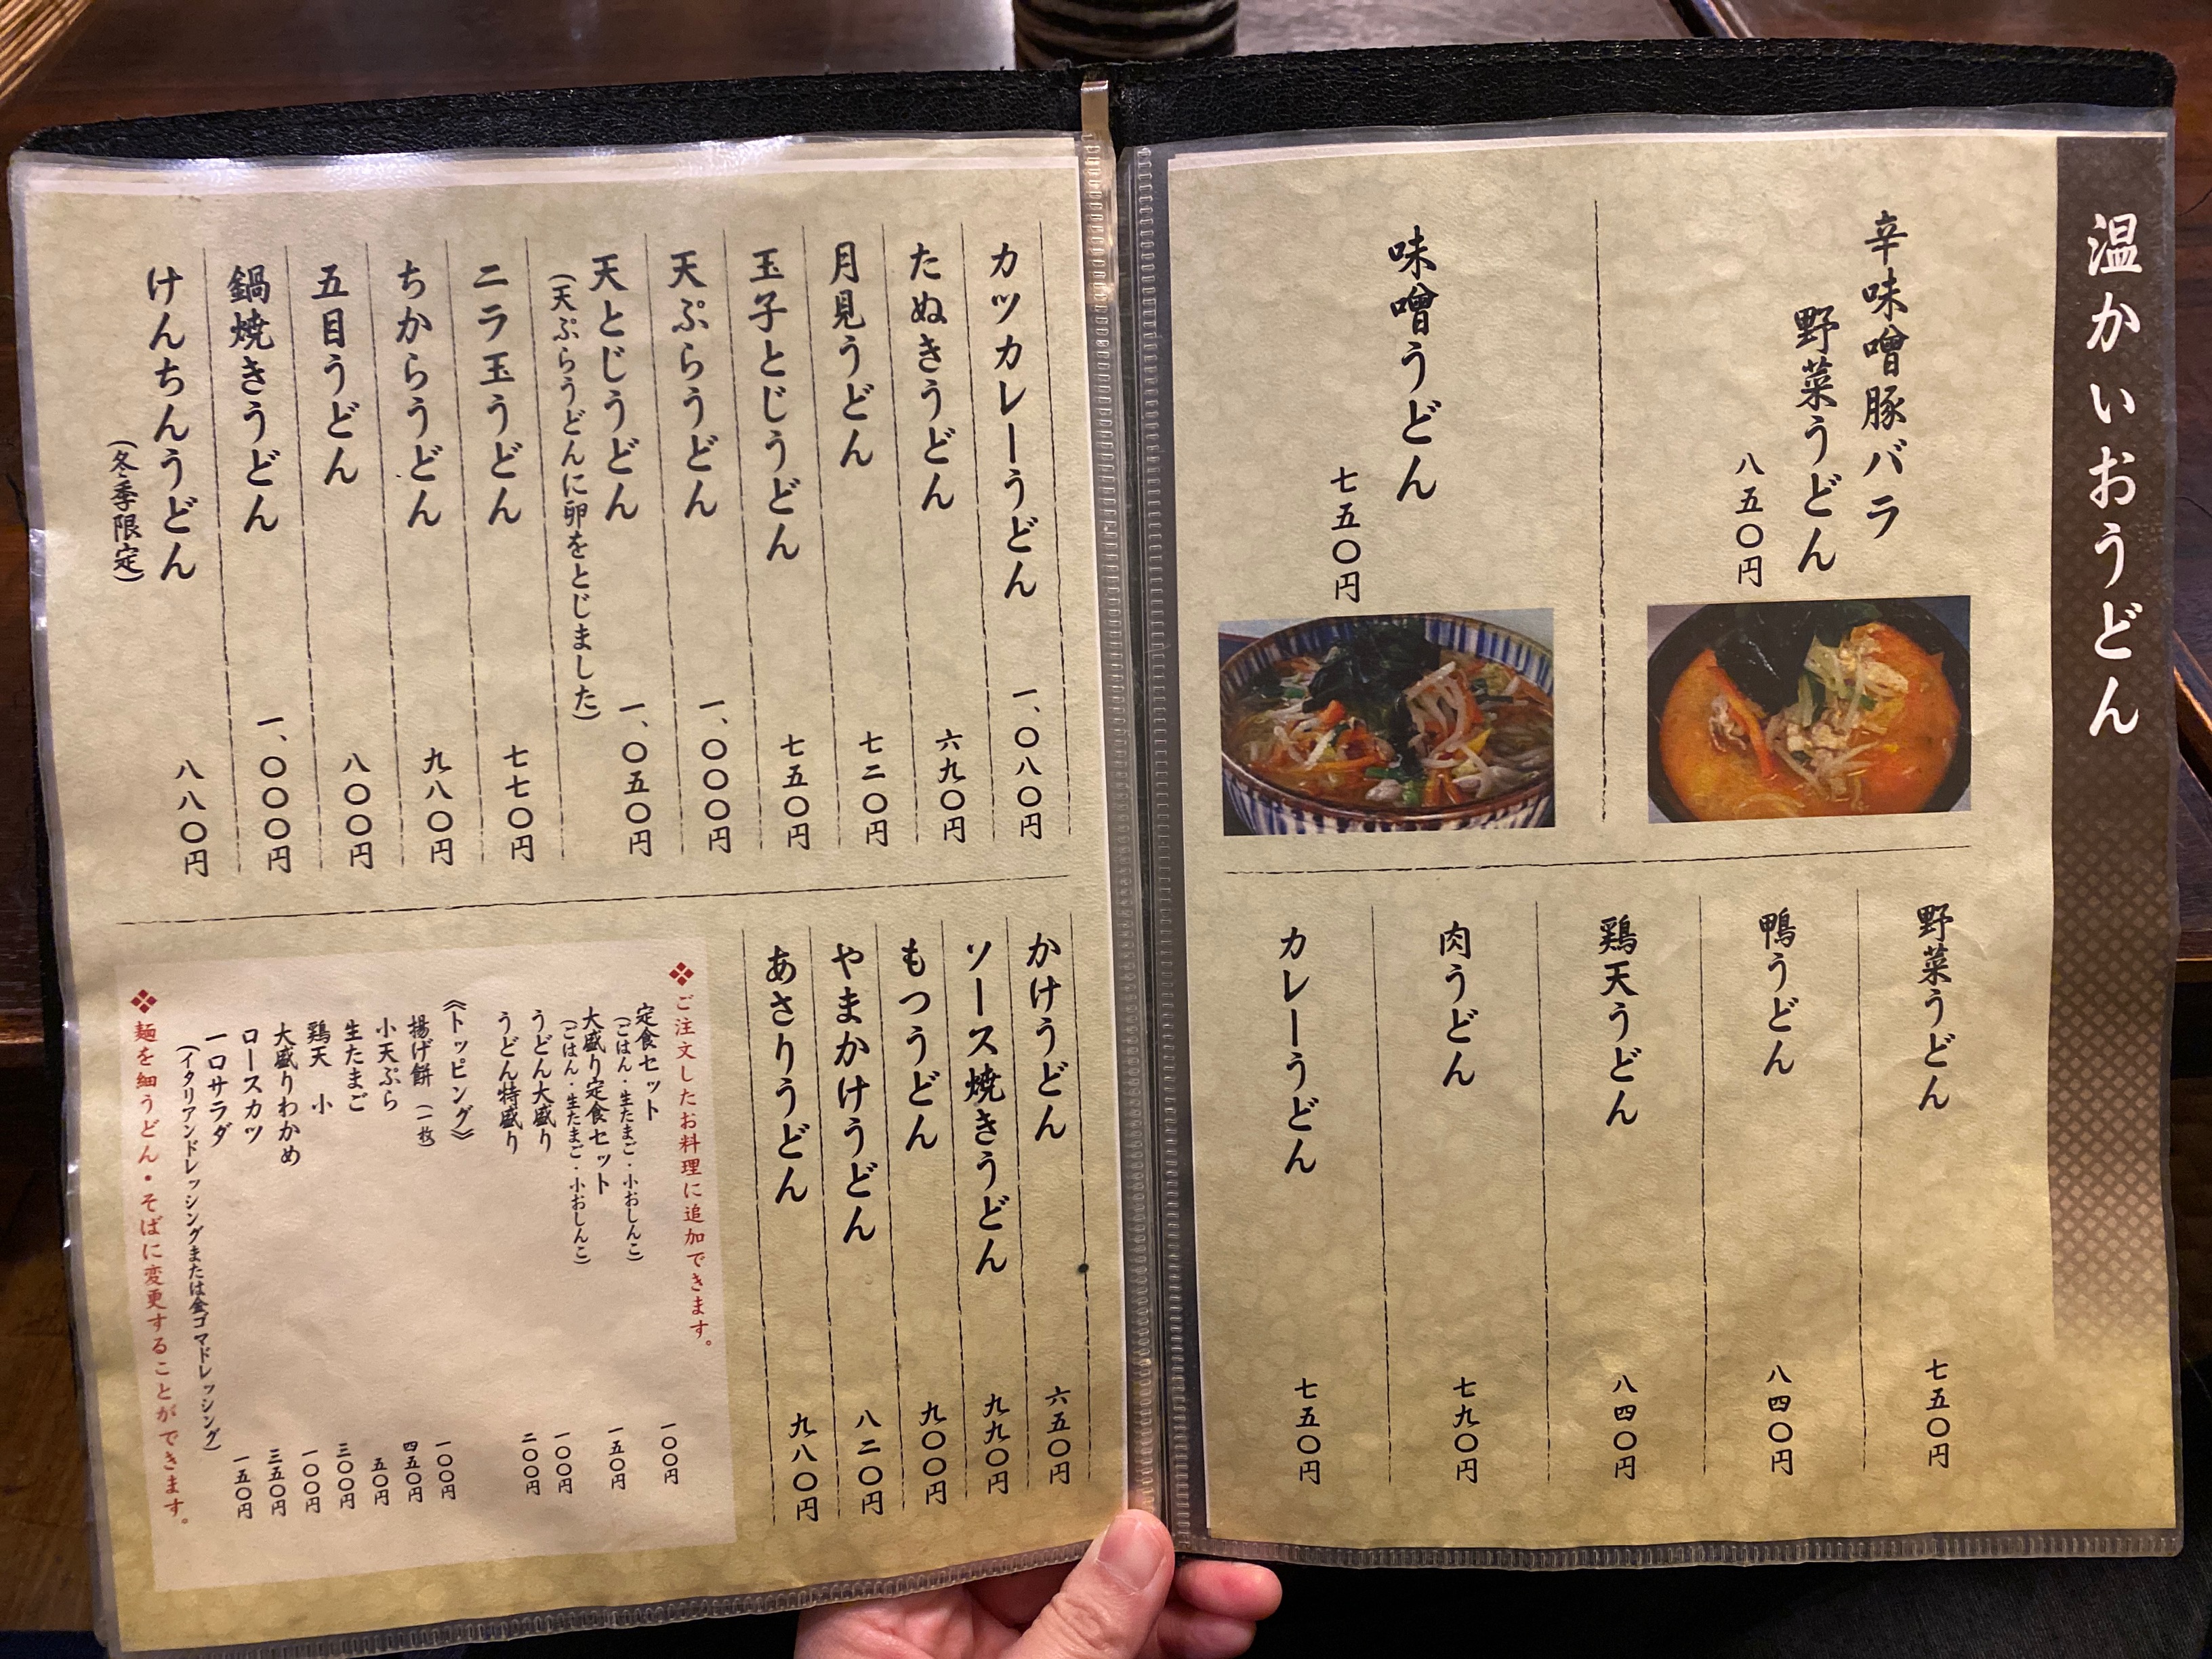 温かいおうどん
辛味噌豚バラ
野菜うどん
八五〇円
味噌うどん
七五〇円
野菜うどん
七五〇円
鴨うどん
八四〇円
鶏天うどん
八四〇円
肉うどん
七九〇円
カレーうどん
七五〇円
カツカレーうどん
一、〇八〇円
たぬきうどん
六九〇円
月見うどん
七二〇円
玉子とじうどん
七五〇円
天ぷらうどん
一、〇〇〇円
天とじうどん
一、〇五〇円
(天ぷらうどんに卵をとじました)
ニラ玉うどん
七七〇円
ちからうどん
九八〇円
五目うどん
八〇〇円
鍋焼きうどん
一、〇〇〇円
けんちんうどん
八八〇円
(冬季限定)
かけうどん
六五〇円
ソース焼きうどん
九九〇円
もつうどん
九〇〇円
やまかけうどん
八二〇円
あさりうどん
九八〇円
❖ご注文したお料理に追加できます。
定食セット
一〇〇円
(ごはん・生たまご・小おしんこ)
大盛り定食セット
一五〇円
(ごはん・生たまご・小おしんこ)
うどん大盛り
一〇〇円
うどん特盛り
二〇〇円
《トッピング》
揚げ餅 (一枚)
一〇〇円
小天ぷら
四五〇円
生たまご
五〇円
鶏天 小
三〇〇円
大盛りわかめ
一〇〇円
ロースカツ
三五〇円
一口サラダ
一五〇円
(イタリアンドレッシングまたは金ゴマドレッシング)
❖麺を細うどん・そばに変更することができます。